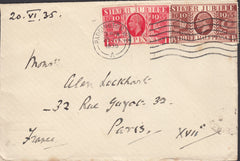 20. VI. 35.
SILVER JUBILEE
SILVER JUBILEE
Monsr
Alan Lockhart
32 Rue Guyot. 32
Paris. XVII
France